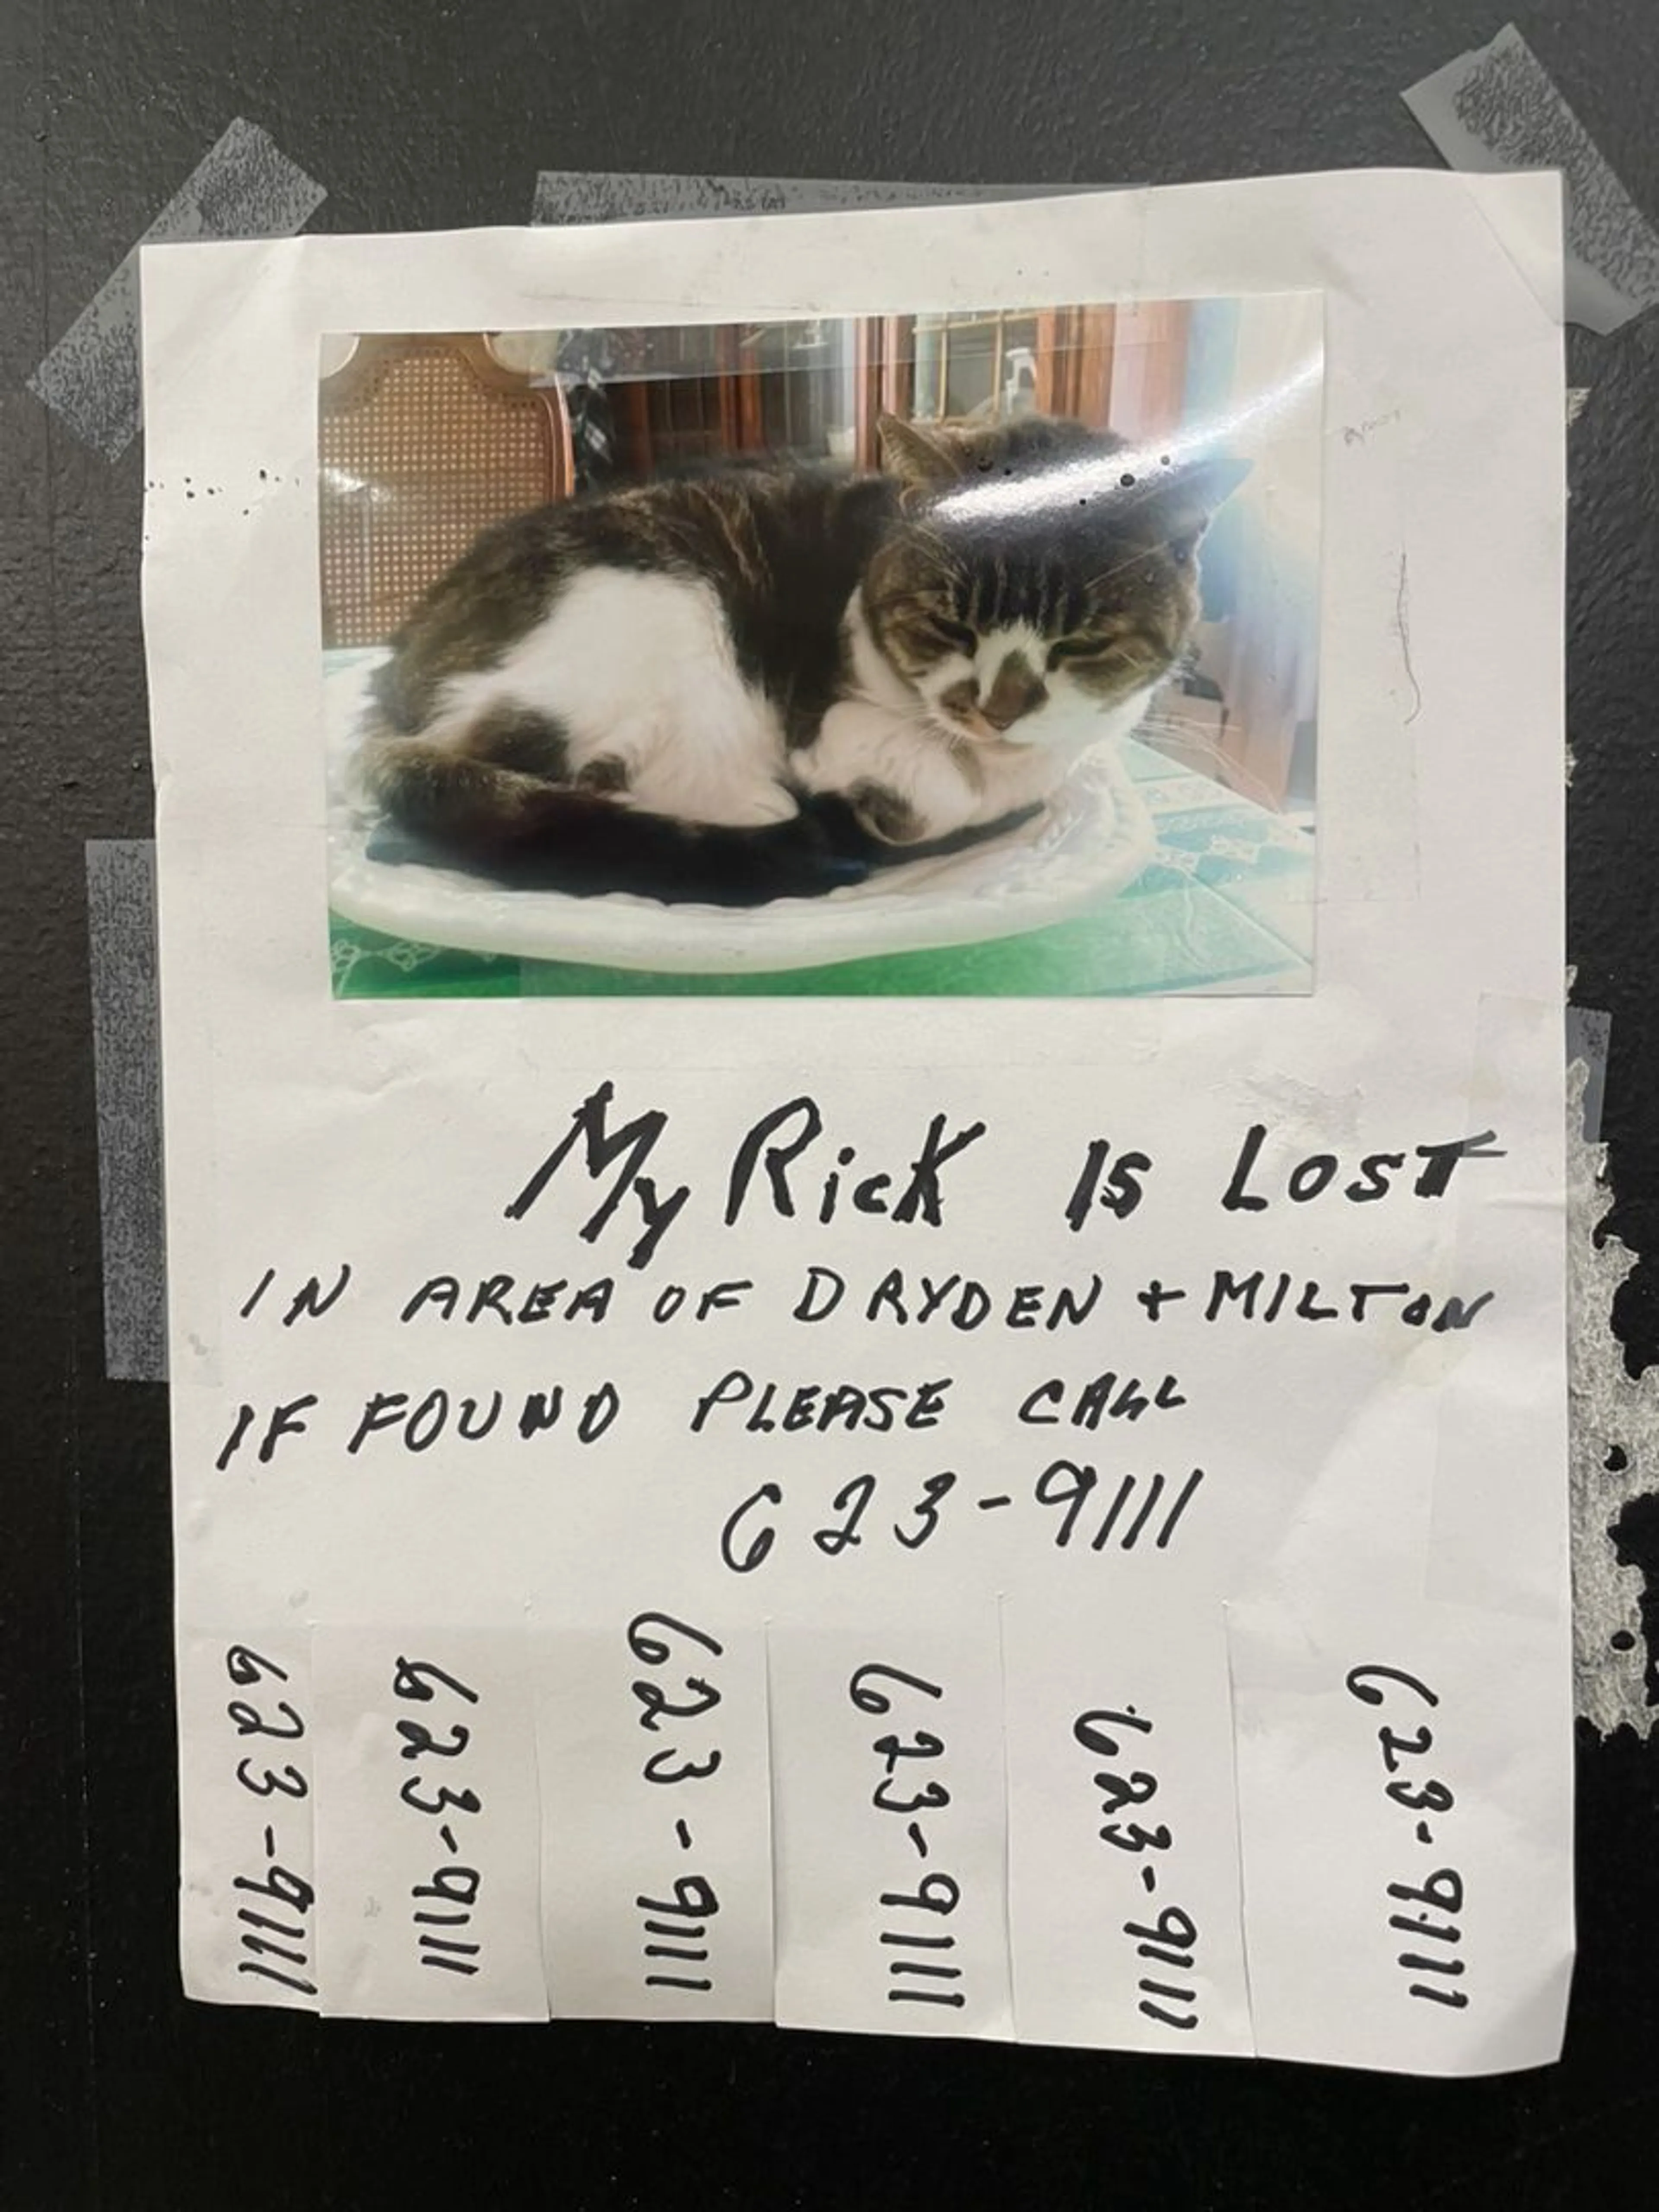 My Rick is Lost
IN AREA OF DRYDEN + MILTON
IF FOUND PLEASE CALL
623-9111
623-9111
623-9111
623-9111
623-9111
623-9111
623-9111